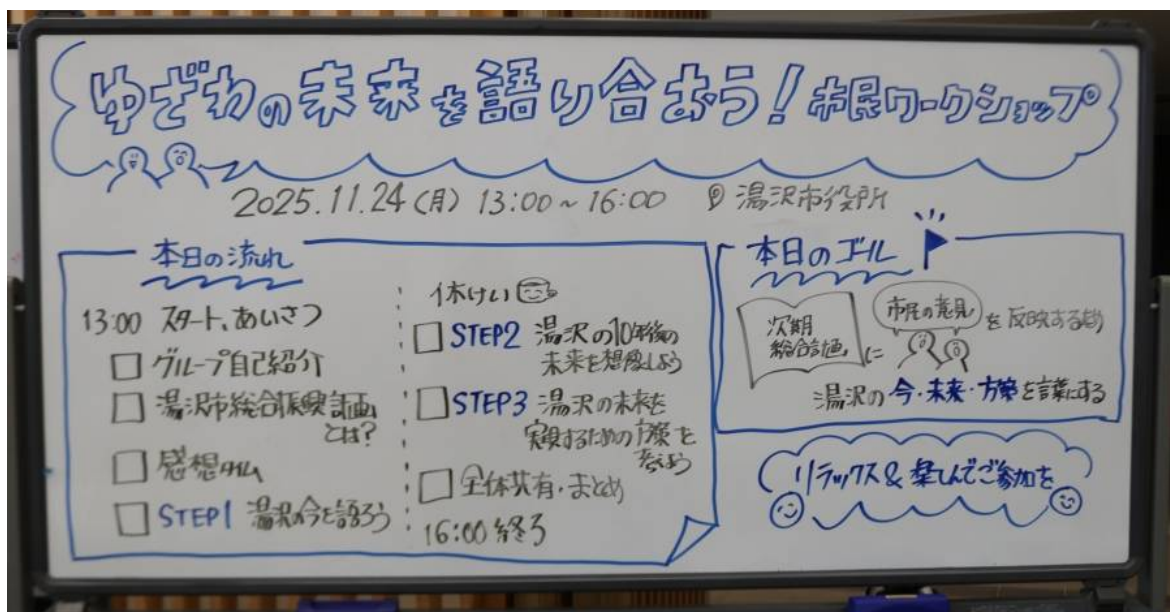 ゆざわの未来を語り合おう！市民ワークショップ
2025.11.24(月) 13:00~16:00 湯沢市役所
本日の流れ
13:00 スタート、あいさつ
グループ自己紹介
湯沢市総合振興計画
とは?
感想タイム
STEP1 湯沢の今を語ろう
休けい
STEP2 湯沢の10年後の
未来を想像しよう
STEP3 湯沢の未来を
実現するための方策を
考えよう
全体共有・まとめ
16:00 終了
本日のゴール
次期
総合計画に
市民の意見を反映するため
湯沢の今・未来・方策を言葉にする
リラックス&楽しんでご参加を